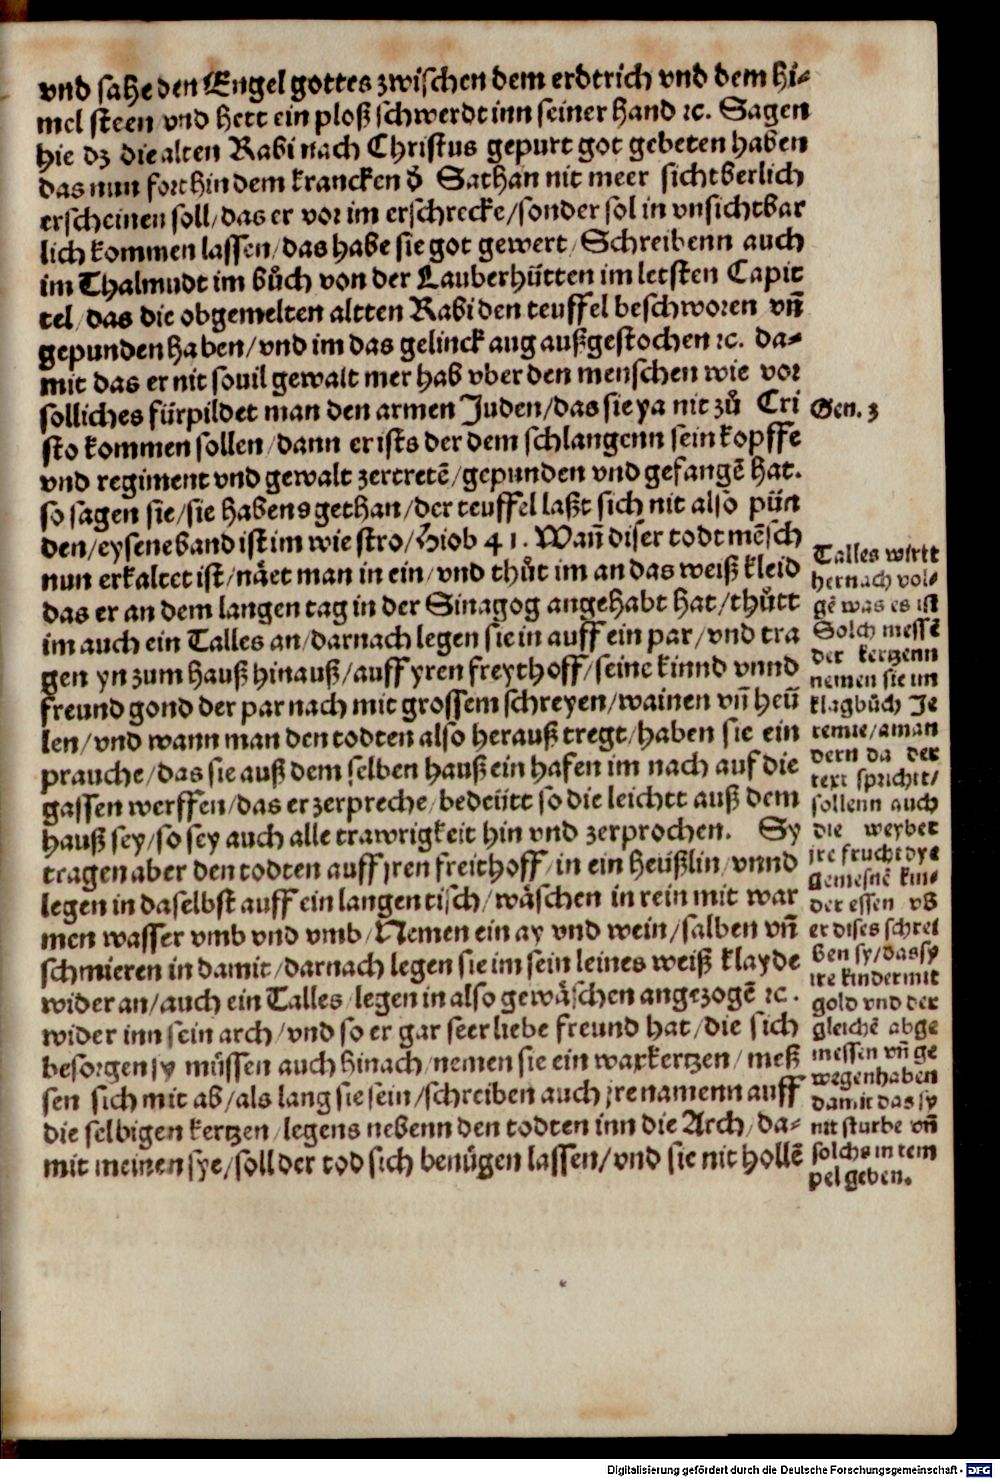 vnd sahe den Engel gottes zwischen dem erdtrich vnd dem hi⸗
mel steen vnd hett ein ploß schwerdt inn seiner hand ⁊c. Sagen
hie dz die alten Rabi nach Christus gepurt got gebeten haben
das nun forthin dem krancken d̕ Sathan nit meer sichtberlich
erscheinen soll/das er vor im erschrecke/sonder sol in vnsichtbar
lich kommen lassen/das habe sie got gewert/Schreibenn auch
im Thalmudt im bůch von der Lauberhütten im letsten Capit
tel/das die obgemelten altten Rabi den teuffel beschworen vñ
gepunden haben/vnd im das gelinck aug außgestochen ⁊c. da⸗
mit das er nit souil gewalt mer hab vber den menschen wie vor
solliches fürpildet man den armen Juden/das sie ya nit zů Cri
sto kommen sollen/dann er ists der dem schlangenn sein kopffe
vnd regiment vnd gewalt zertretē/gepunden vnd gefangē hat.
so sagen sie/sie habens gethan/der teuffel laßt sich nit also pün
den/eysene band ist im wie stro/Hiob 41. Wañ diser todt mēsch
nun erkaltet ist/näet man in ein/vnd thůt im an das weiß kleid
das er an dem langen tag in der Sinagog angehabt hat/thůtt
im auch ein Talles an/darnach legen sie in auff ein par/vnd tra
gen yn zum hauß hinauß/auff yren freythoff/seine kinnd vnnd
freund gond der par nach mit grossem schreyen/wainen vñ heü
len/vnd wann man den todten also herauß tregt/haben sie ein
prauche/das sie auß dem selben hauß ein hafen im nach auf die
gassen werffen/das er zerpreche/bedeütt so die leichtt auß dem
hauß sey/so sey auch alle trawrigkeit hin vnd zerprochen. Sy
tragen aber den todten auff jren freithoff/in ein heüßlin/vnnd
legen in daselbst auff ein langen tisch/wäschen in rein mit war
men wasser vmb vnd vmb/Nemen ein ay vnd wein/salben vñ
schmieren in damit/darnach legen sie im sein leines weiß klayde
wider an/auch ein Talles/legen in also gewäschen angezogē ⁊c.
wider inn sein arch/vnd so er gar seer liebe freund hat/die sich
besorgen sy müssen auch hinach/nemen sie ein waxkertzen/meß
sen sich mit ab/als lang sie sein/schreiben auch jre namenn auff
die selbigen kertzen/legens nebenn den todten inn die Arch/da⸗
mit meinen sye/soll der tod sich benügen lassen/vnd sie nit hollē
Gen. 3
Talles wirtt
hernach vol⸗
gē was es ist
Solch messē
der kertzenn
nemen sie im
klagbůch Je
remie/aman
dern da der
text spricht/
sollenn auch
die weyber
jre frucht dye
gemesnē kin⸗
der essen vß
er dises schrei
ben sy/das sy
ire kinder mit
gold vnd der
gleichē abge
messen vñ ge
wegen haben
damit das sy
nit sturbe vñ
solchs in tem
pel geben.
Digitalisierung gefördert durch die Deutsche Forschungsgemeinschaft - DFG